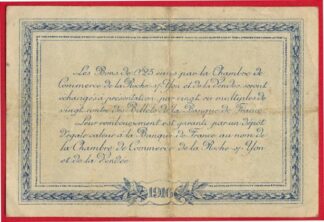 Les Bons de 0f25 émis par la Chambre de
Commerce de la Roche-s/-Yon et de la Vendée seront
échangés à présentation par vingt ou multiples de
vingt contre des Billets de la Banque de France.
Leur remboursement est garanti par un dépôt
d'égale valeur à la Banque de France au nom de
la Chambre de Commerce de la Roche-s/-Yon
et de la Vendée
1916